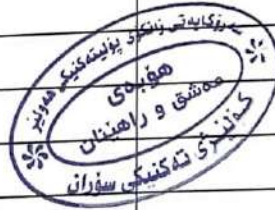 سەرۆکایەتی زانکۆی پۆلیتەکنیکی هەولێر
هۆبەی
مەشق و راهێنان
کۆلێژی تەکنیکی سۆران